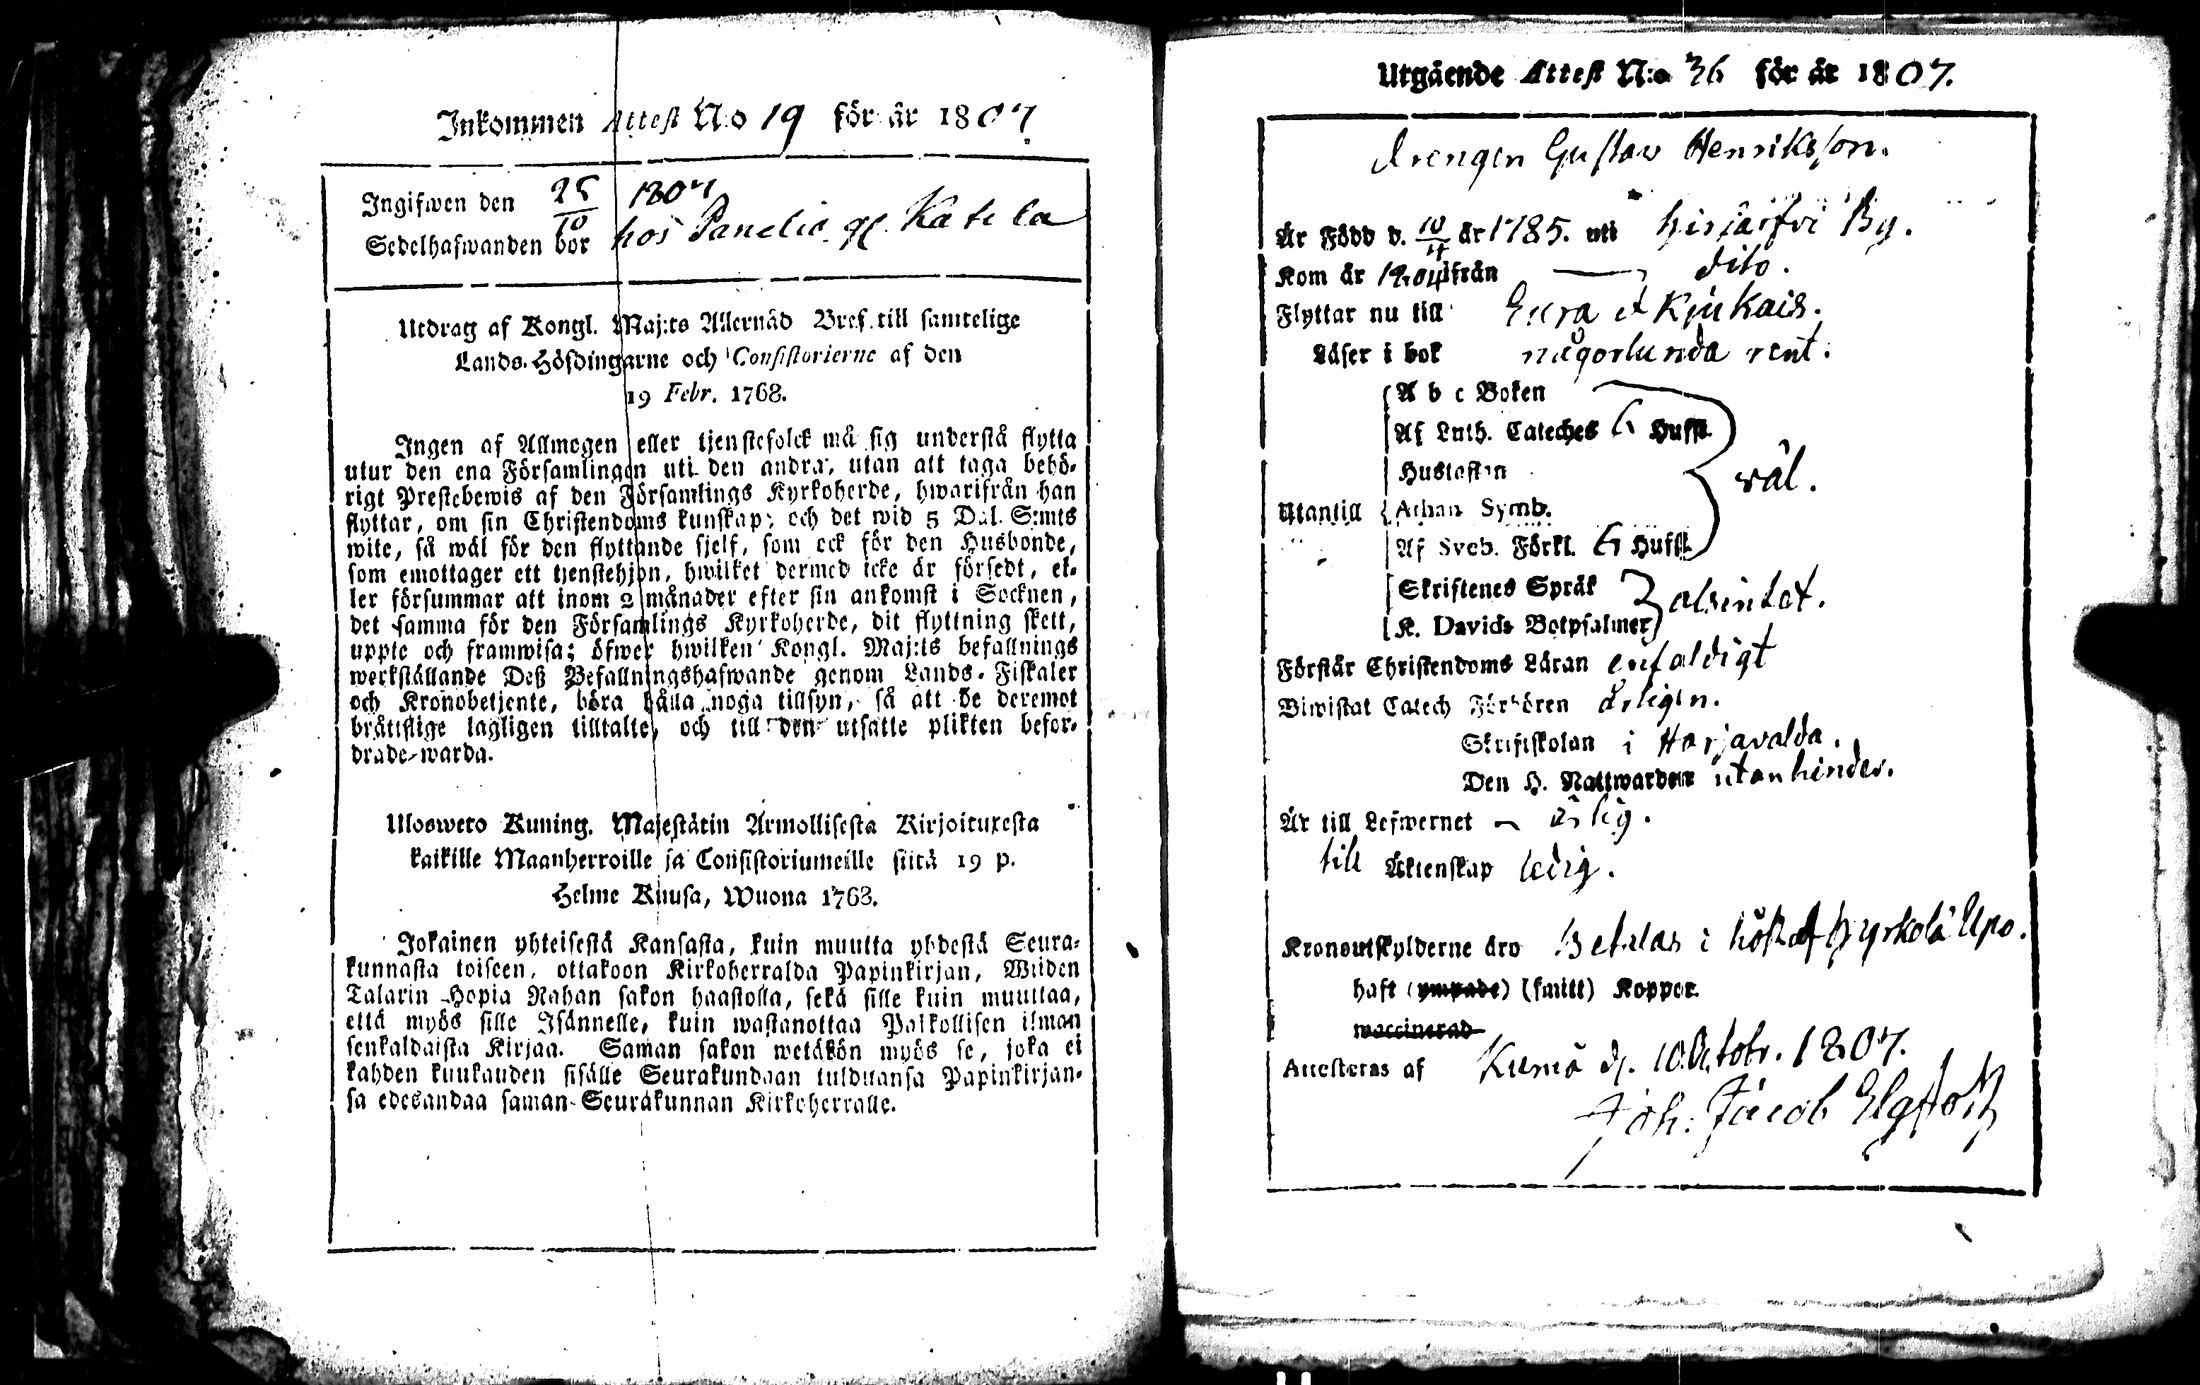 Inkommen Attest N:o 19 för år 1807
Ingifwen den 25/10 1807
Sedelhafwanden bor hos Panelia Katela
Utdrag af Kongl. Maj:ts Allernåd Bref till samtelige
Lands-Höfdingarne och Consistorierne af den
19 Febr. 1768.
Ingen af Allmogen eller tjenstefolck må sig understå flytta
utur den ena Församlingen uti den andra, utan att taga behö-
rigt Prestebewis af den Församlings Kyrkoherde, hwarifrån han
flyttar, om sin Christendoms kunskap; och det wid 5 Dal. S:mts
wite, så wäl för den flyttande sjelf, som ock för den Husbonde,
som emottager ett tjenstehjon, hwilket dermed icke är försedt, el-
ler försummar att inom 2 månader efter sin ankomst i Socknen,
det samma för den Församlings Kyrkoherde, dit flyttning skett,
uppte och framwisa; öfwer hwilken Kongl. Maj:ts befallnings
werkställande Deß Befallningshafwande genom Lands-Fiskaler
och Kronobetjente, böra hålla noga tillsyn, så att de deremot
bråttslige lagligen tilltalte, och till den utsatte plikten befor-
drade warda.
Ulosweto Kuning. Majestätin Armollisesta Kirjoituxesta
kaikille Maanherroille ja Consistoriumeille siitä 19 p.
Helme Kuusa, Wuona 1768.
Jokainen yhteisestä Kansasta, kuin muutta yhdestä Seura-
kunnasta toiseen, ottakoon Kirkoherralda Papinkirjan, Wiiden
Talarin Hopia Rahan sakon haastolla, sekä sille kuin muuttaa,
että myös sille Isännelle, kuin wastanottaa Palkollisen ilman
senkaldaista Kirjaa. Saman sakon wetäkön myös se, joka ei
kahden kuukauden sisälle Seurakundaan tulduansa Papinkirjan-
sa edesandaa saman Seurakunnan Kirkoherralle.
Utgående Attest N:o 36 för år 1807.
Drengen Gustav Henriksson.
Är Född d. 10/4 år 1785. uti Hirjärfvi By.
Kom år 1804 ifrån — dito.
Flyttar nu till Eura et Kjukais.
Läser i bok någorlunda rent.
A b c Boken
Af Luth. Cateches G Hufst.
Hustaflan
väl.
Utantill Athan Symb.
Af Sveb. Förkl. G Hufst.
Skriftenes Språk
alsintet.
K. Davids Botpsalmer
Förstår Christendoms Läran enfaldigt
Biwistat Catech Förhören årligen.
Skriftskolan i Harjavalda.
Den H. Nattwarden utan hinder.
Är till Lefwernet — ärlig.
till Äktenskap ledig.
Kronoutskylderne äro Betalas i Kyrkolä Upo.
haft (ympade) (smitt) Koppor.
waccinerad
Attesteras af Kumo d. 10 Octobr. 1807.
Joh. Jacob Elgfolk